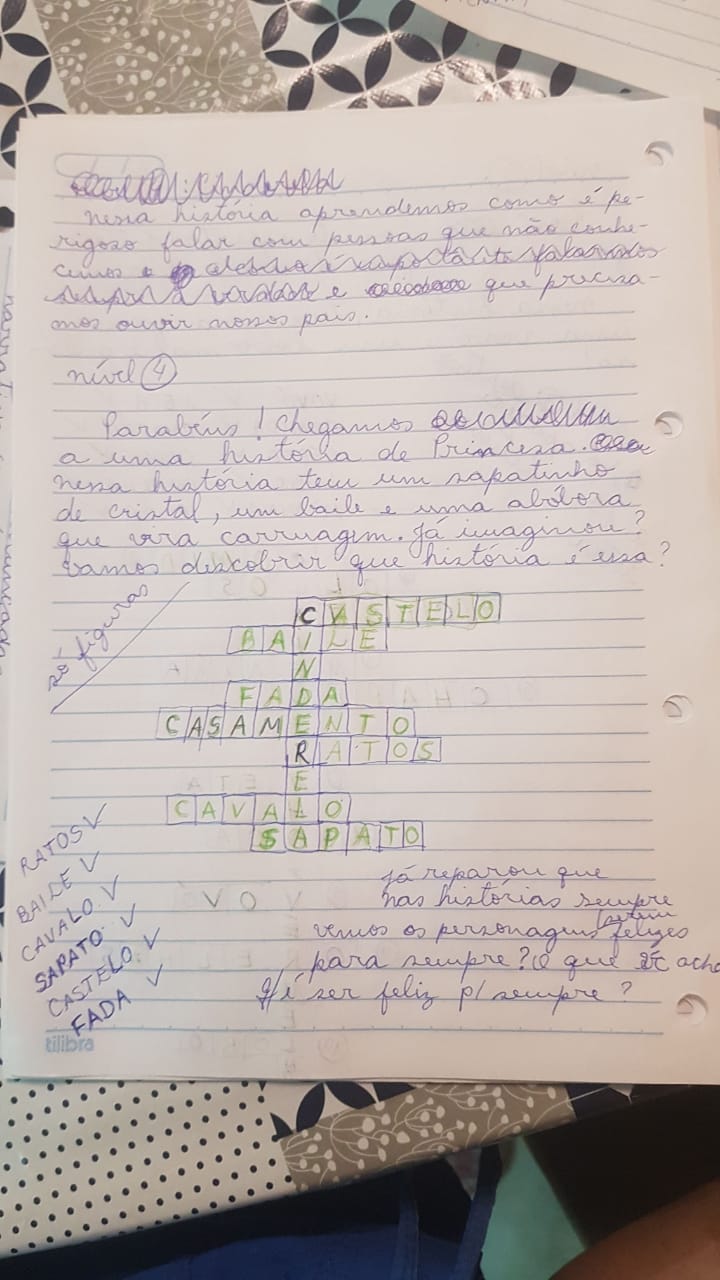 nessa história aprendemos como é pe-
rigoso falar com pessoas que não conhe-
cemos e
e que precisa-
mos ouvir nossos pais.
nível 4
Parabéns! Chegamos
a uma história de Princesa.
nessa história tem um sapatinho
de cristal, um baile e uma abóbora
que vira carruagem. Já imaginou?
vamos descobrir que história é essa?
só figuras
CASTELO
BAILE
N
FADA
CASAMENTO
RATOS
E
CAVALO
SAPATO
RATOS ✓
BAILE ✓
CAVALO ✓
SAPATO ✓
CASTELO ✓
FADA ✓
Já reparou que
nas histórias sempre
vemos os personagens serem felizes
para sempre? O que acha
q/ é ser feliz p/ sempre?
tilibra